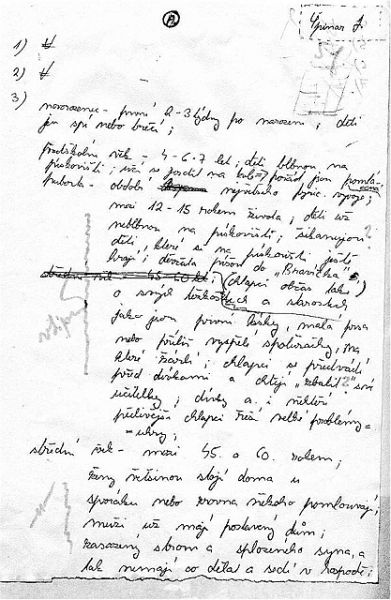 A
Špinar J.
1) 4
2) 4
3)
novorozenec - první 2-3 týdny po narození; děti
jen spí nebo brečí;
předškolní věk - 4-6-7 let; děti blbnou na
pískovišti; učí se jezdit na kole, pořád jsou
puberta - období největšího fyzic. vývoje;
mezi 12-15 rokem života; děti už
neblbnou na pískovišti; šikanujou
děti, které si na pískovišti ještě
hrají; děvčata píšou do "Bravíčka"
střední věk 45-60 let; (chlapci občas také)
o svých těžkostech a starostech
jako jsou první lásky, malá prsa
nebo příliš vyspělé spolužačky, na
které žárlí; chlapci se předvádí
před dívkami a chtějí "sbalit" své
učitelky; dívky a i někteří
chlapci řeší velké problémy
- uhry;
střední věk - mezi 45. a 60. rokem;
ženy většinou stojí doma u
sporáku nebo zrovna někoho pomlouvají;
muži už mají postavený dům,
zasazený strom a zplozeného syna, a
tak nemají co dělat a sedí v hospodě;